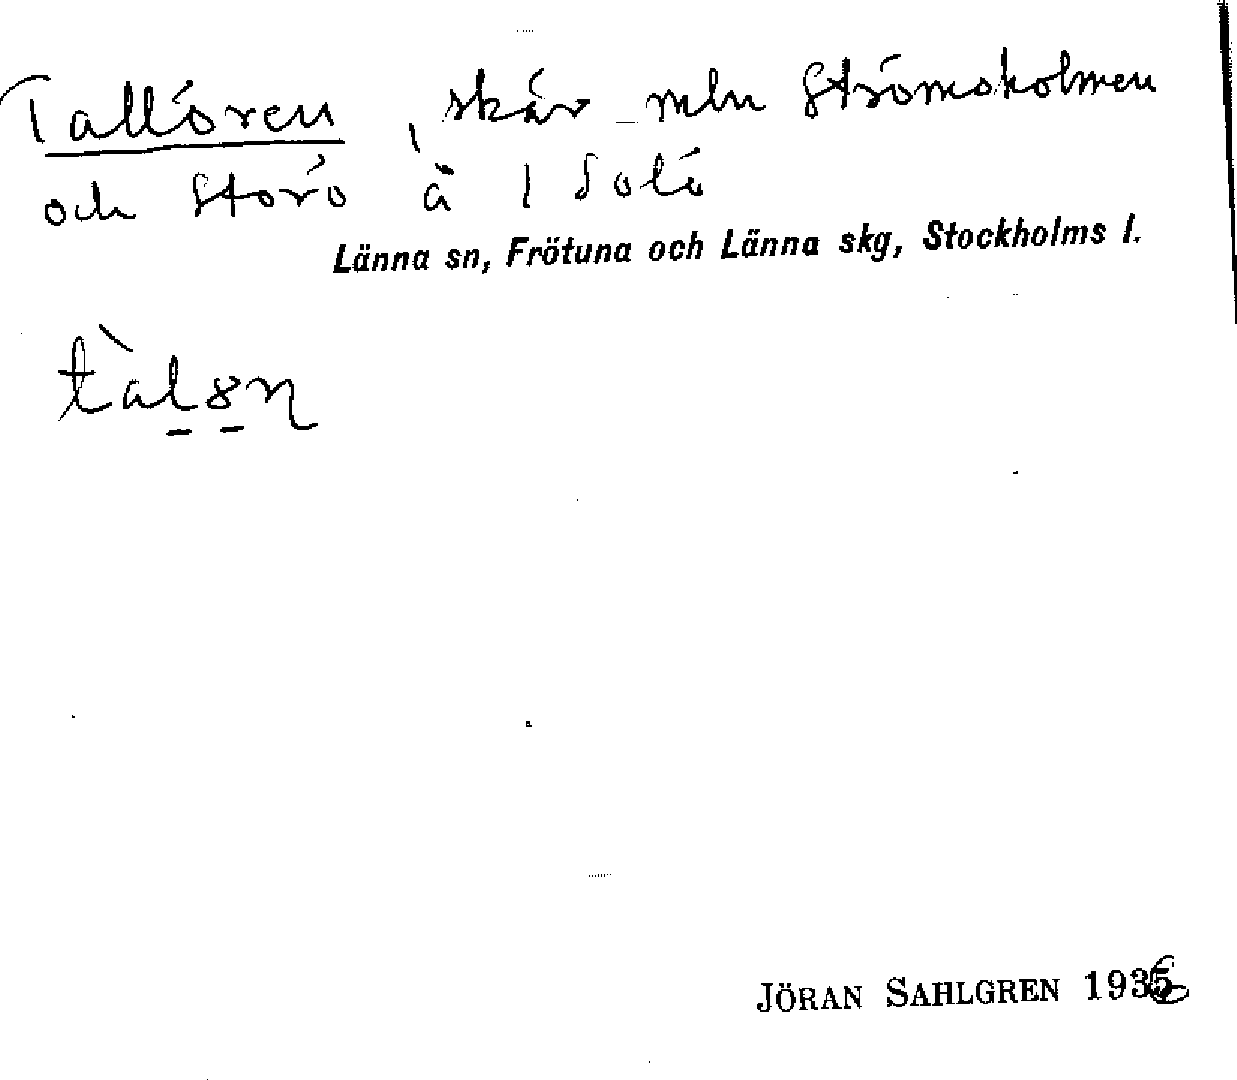 Tallören, skär mln Strömsholmen
och Storö ä 1 Solö
Länna sn, Frötuna och Länna skg, Stockholms l.
tàl8n
JÖRAN SAHLGREN 1936